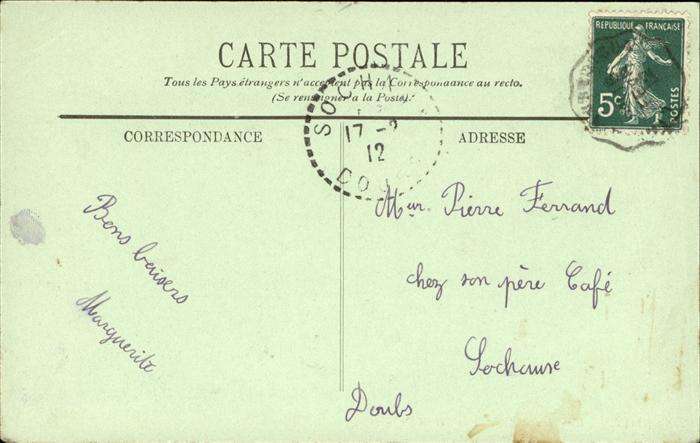 CARTE POSTALE
Tous les Pays étrangers n'acceptent pas la Correspondance au recto.
(Se renseigner à la Poste).
CORRESPONDANCE
ADRESSE
REPUBLIQUE FRANÇAISE
5c
POSTES
17 -
12
DOU
Bons baisers
Marguerite
Mr. Pierre Ferrand
chez son père Café
Sochause
Doubs